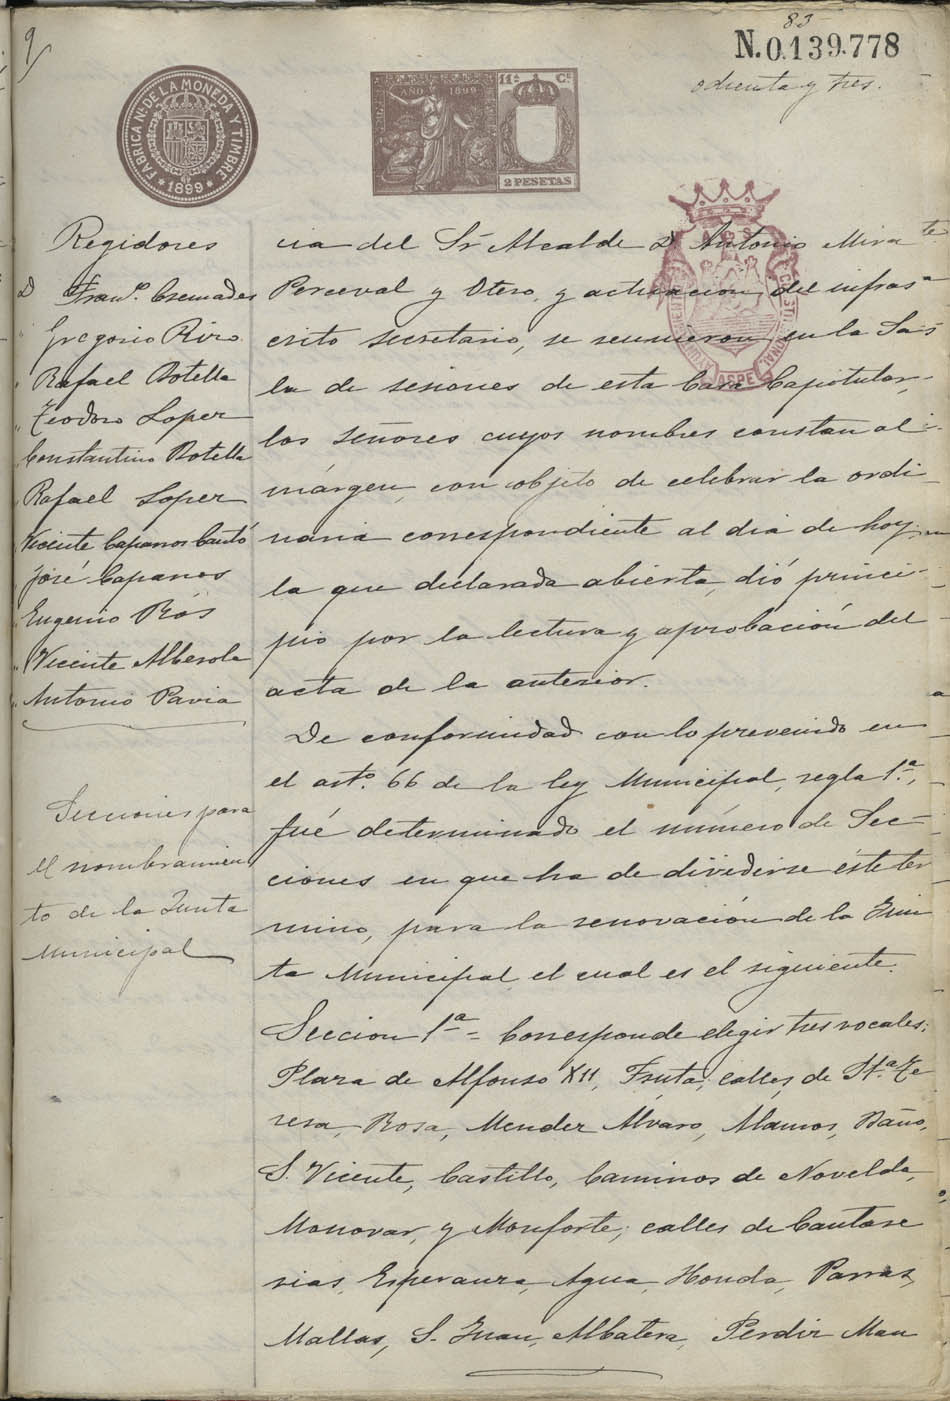 9
83
N.0.139.778
ochenta y tres.
FABRICA NL. DE LA MONEDA Y TIMBRE
* 1899 *
AÑO 1899
11ª CE
2 PESETAS
ASPE
Regidores
D Franco. Cremades
" Gregorio Rizo
" Rafael Botella
" Teodoro Lopez
" Constantino Botella
" Rafael Lopez
" Vicente Caparros Cantó
" José Caparros
" Eugenio Rós
" Vicente Alberola
" Antonio Pavia
Secciones para
el nombramien
to de la Junta
Municipal
cia del Sr Alcalde D. Antonio Mira te
Perceval y Otero, y actuacion del infras
crito secretario, se reunieron en la Sa-
la de sesiones de esta Casa Capitular,
los señores cuyos nombres constan al
márgen, con objeto de celebrar la ordi-
naria correspondiente al dia de hoy, en
la que declarada abierta, dió princi-
pio por la lectura y aprobación del
acta de la anterior.
De conformidad con lo prevenido en
el arto. 66 de la ley Municipal, regla 1.ª,
fué determinado el número de Sec-
ciones en que ha de dividirse éste tér
mino, para la renovación de la Jun
ta Municipal, el cual es el siguiente.
Seccion 1ª = Corresponde elegir tres vocales:
Plaza de Alfonso XII, Fruta; calles, de Sta. Te
resa, Rosa, Mendez Alvaro, Alamos, Baño,
S. Vicente, Castillo, Caminos de Novelda,
Monovar, y Monforte; calles de Cantare
rias, Esperanza, Agua, Honda, Parras,
Mallas, S. Juan, Albatera, Perdiz Man